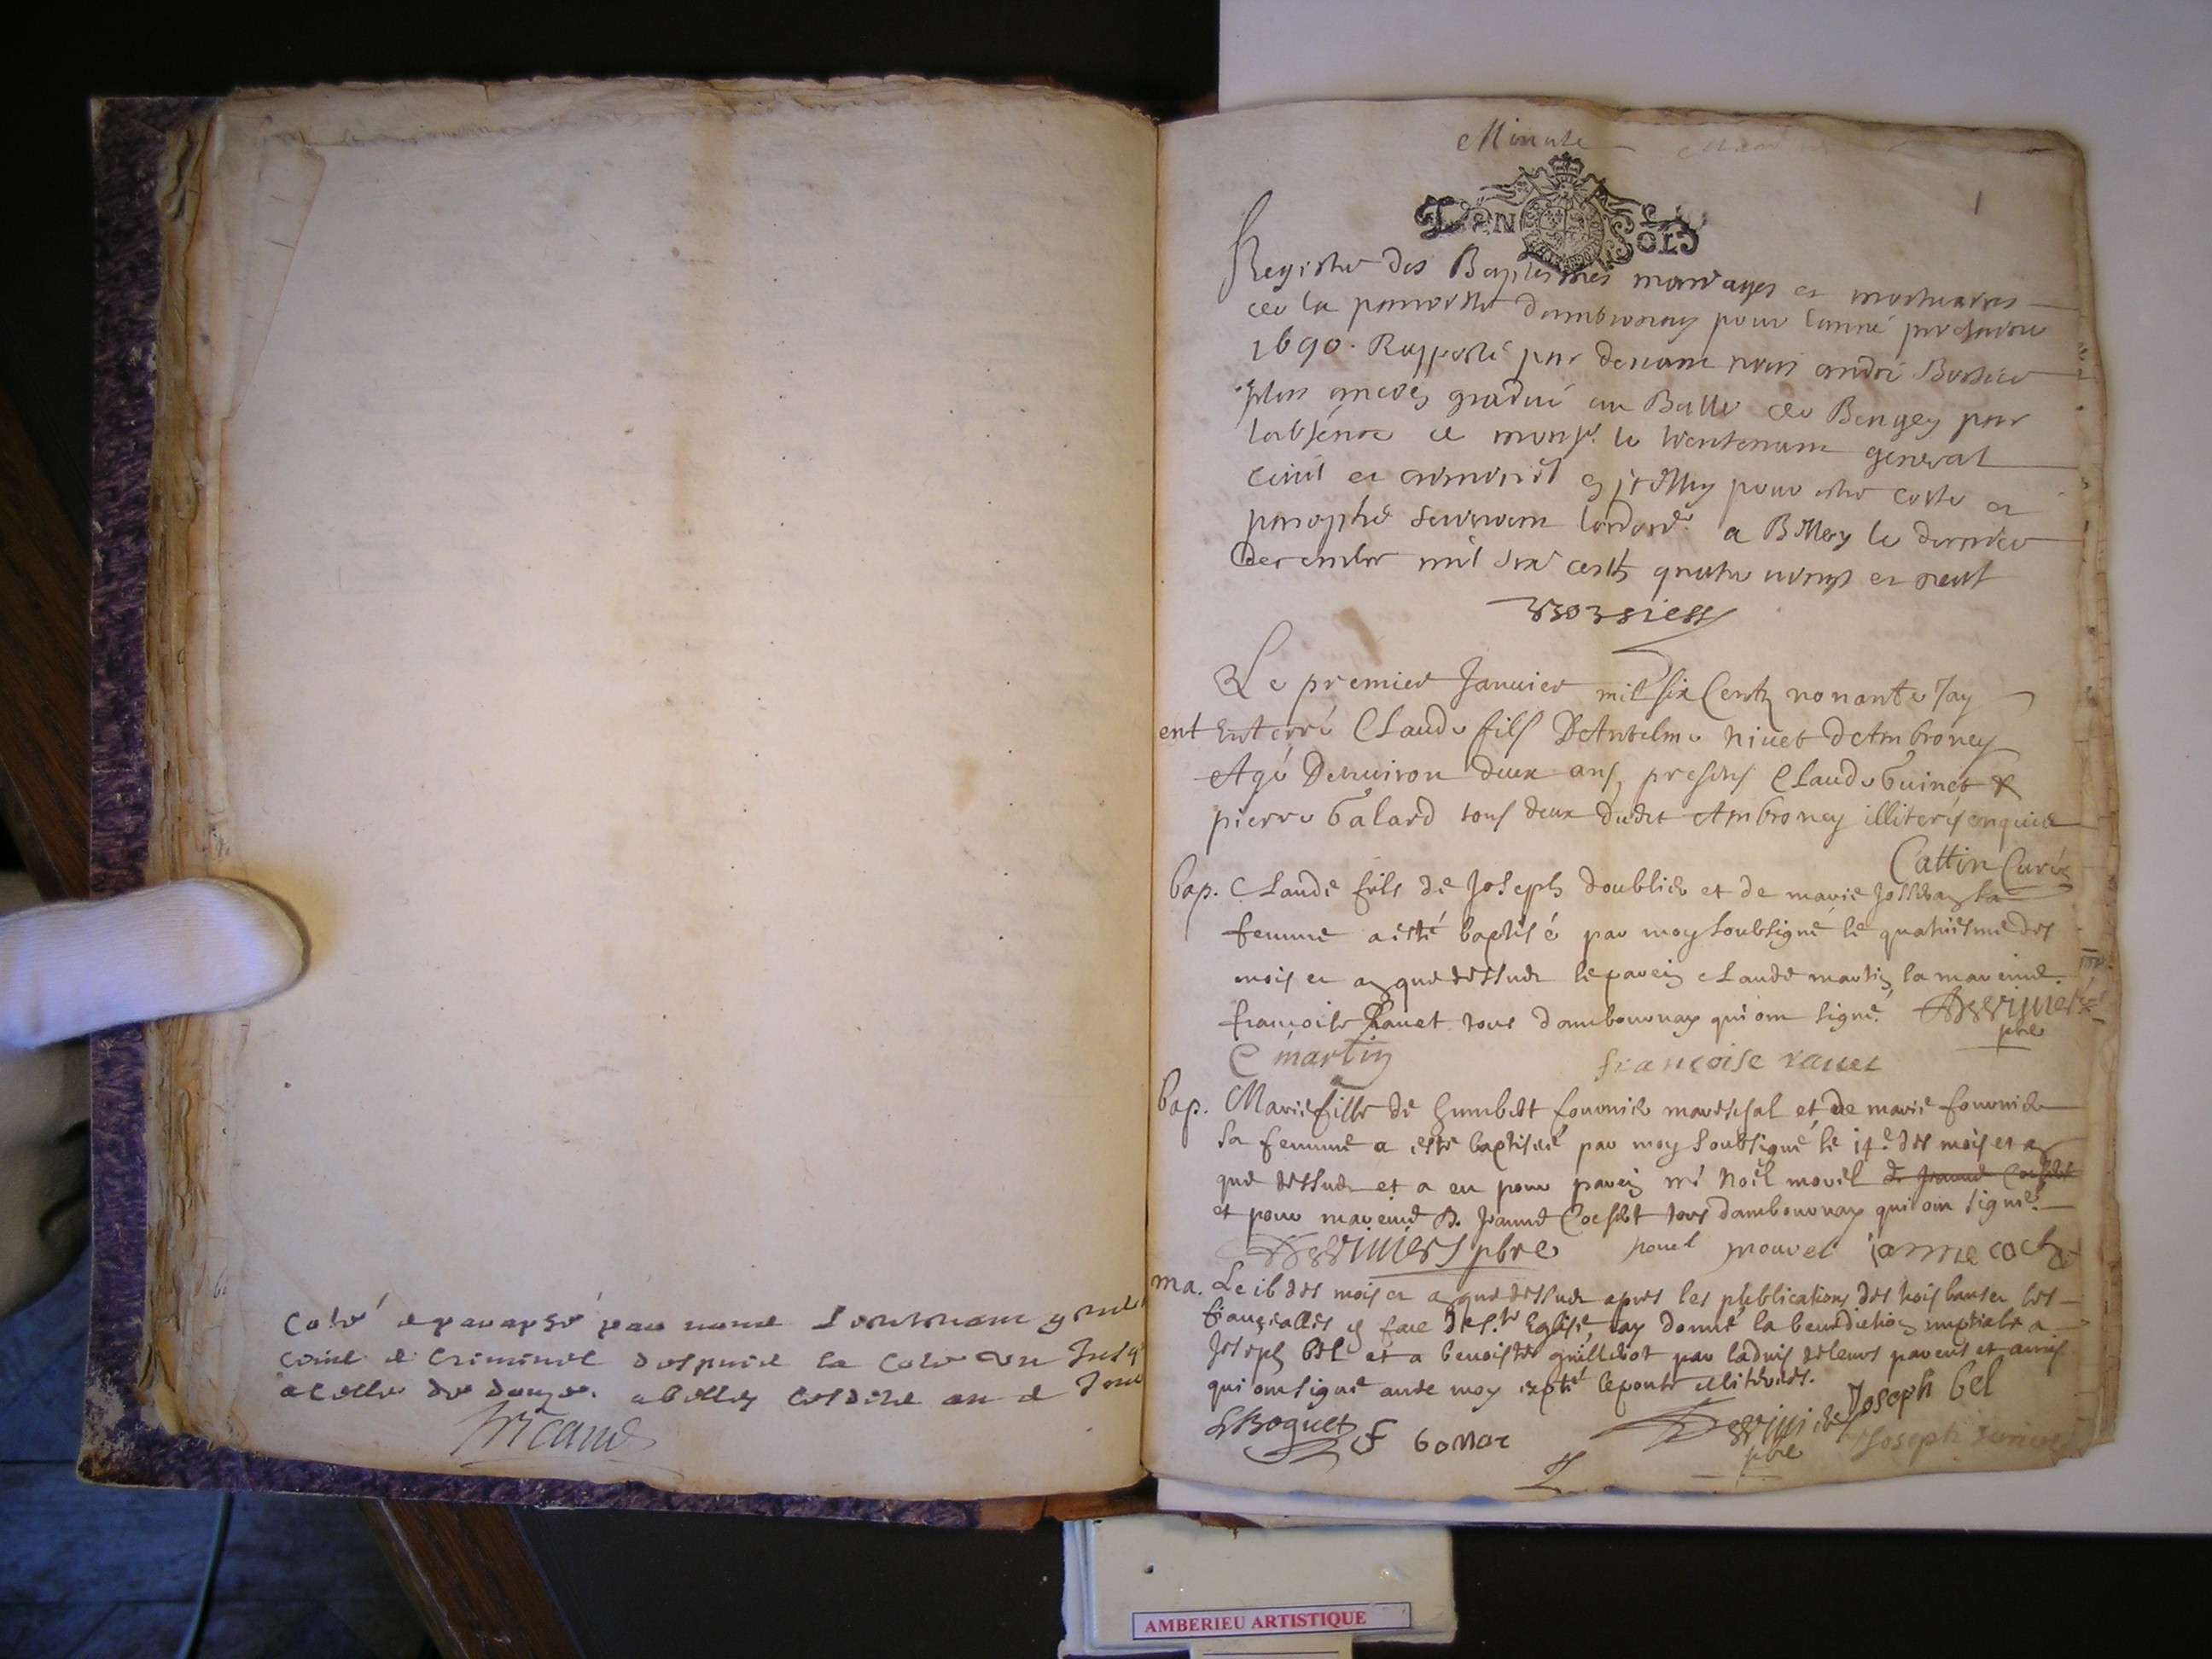 Coté et paraphé par nous Lieutenant gnal
civil et Criminel despuis la Cote Un Jusq
a celle de douze. a belley lesdits an et Jour
Minute
DEN SOLS
1
Registre des Baptesmes mariages et mortuaires
de la parroisse dambronay pour lanné prochaine
1690. Rapporté par devant nous andré Bossier
plus ancien gradué au Balle de Beugey pour
labsence de monsr. le lieutenant general
civil et criminel pour estre cotte et
paraphé suivant lordonce a Belley le dernier
decembre mil six cents quatre vingt et neuf
Le premier Janvier mil six Centz nonante Jay
ent Enterré Claude fils D'Antelme nivet d'Ambroney
Agé Denviron deux ans, presens Claude Guinet &
pierre Galard tous deux dudit Ambroney illiterés enquis
Cattin Curé
bap. Claude fils de Joseph doublier et de marie sa
femme a esté baptisé par moy soubsigné le quatriesme des
mois et an que dessus le parein claude martin la mareine
françoise Ravet tous dambournay qui ont signé.
pbre
C martin françoise ravet
bap. Marie fille de humbert fournier mareschal et de marie fournier
sa femme a esté baptisée par moy soubsigné le 14e des mois et an
que dessus et a eu pour parein mr Noël morel
et pour mareine D. Jeanne Cochet tous dambournay qui ont signé.
pbre nouel mouvel janne coch
ma. Le 16 des mois et an que dessus apres les publications des trois bans et les
fiançailles en face de ste Eglise, jay donné la benediction nuptiale a
Joseph bel et a benoiste guillebot par ladvis de leurs parens et amis
qui ont signé avec moy excpté lepouse illiterée.
Joseph bel
Boguet f bonar
pbre Joseph